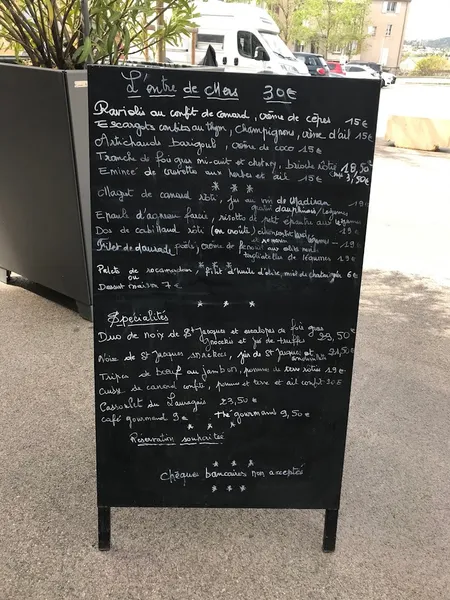 L'entre de Mers 30€
Raviolis au confit de canard, crème de cèpes 15€
Escargots confits au thym, champignons, crème d'ail 15€
Artichauds barigoul, crème de coco 15€
Tranche de foie gras mi-cuit et chutney, brioche rôtie 18,50€
Emincé de crevette aux herbes et ail 15€ 3,50€
* * *
Magret de canard rôti, jus au vin de Madiran 19€
gratin dauphinois/légumes
Epaule d'agneau farcie, risotto de petit épeautre aux légumes
Dos de cabillaud rôti (en croûte) légumes 19€
Filet de daurade poêlé, crème de fenouil aux olives 19€
tagliatelles de légumes 19€
* * *
Palets de rocamadour, filet d'huile d'olive, miel de chataignier 6€
ou
Dessert maison 7€
* *
Spécialités
Duo de noix de St Jacques et escalopes de foie gras 23,50€
Gnocchis et jus de truffes
Noix de St Jacques snackées, jus de St Jacques et 21,50€
Tripes de bœuf au jambon, pommes de terre rôties 19€
Cuisse de canard confite, pomme de terre et ail confit 20€
Cassoulet du Lauragais 23,50€
café gourmand 9€ thé gourmand 9,50€
* * *
Réservation souhaitée
* * *
Chèques bancaires non acceptés
* * *